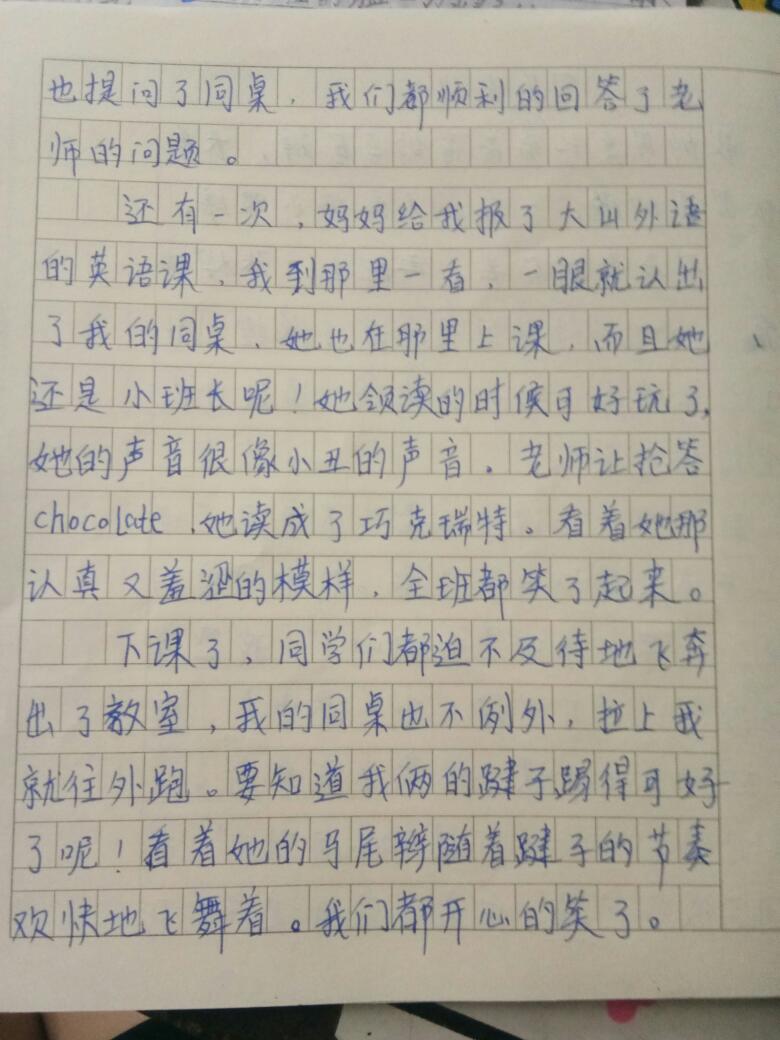 也提问了同桌，我们都顺利的回答了老
师的问题。
还有一次，妈妈给我报了大山外语
的英语课，我到那里一看，一眼就认出
了我的同桌，她也在那里上课，而且她
还是小班长呢！她领读的时候可好玩了，
她的声音很像小丑的声音。老师让抢答
chocolate，她读成了巧克瑞特。看着她那
认真又羞涩的模样，全班都笑了起来。
下课了，同学们都迫不及待地飞奔
出了教室，我的同桌也不例外，拉上我
就往外跑。要知道我俩的踺子踢得可好
了呢！看着她的马尾辫随着踺子的节奏
欢快地飞舞着。我们都开心的笑了。